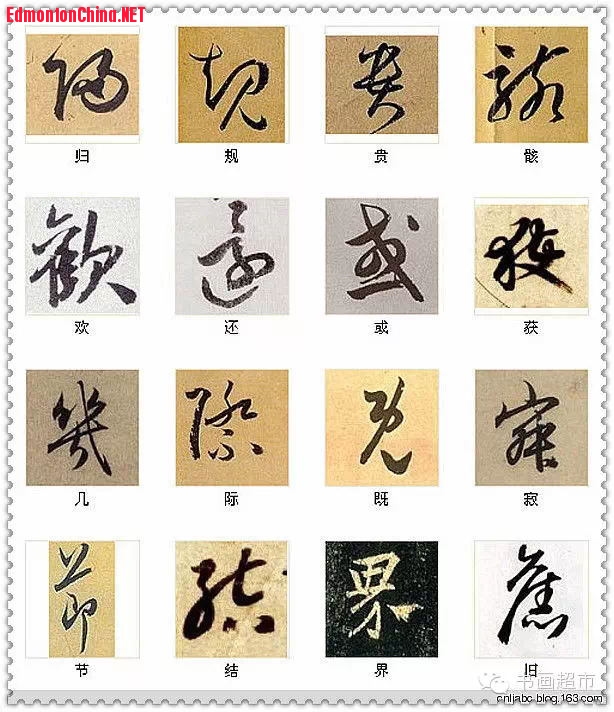 EdmontonChina.NET
归 规 贵 骸
欢 还 或 获
几 际 既 寂
节 结 界 旧
书画超市
cnljabc.blog.163.com